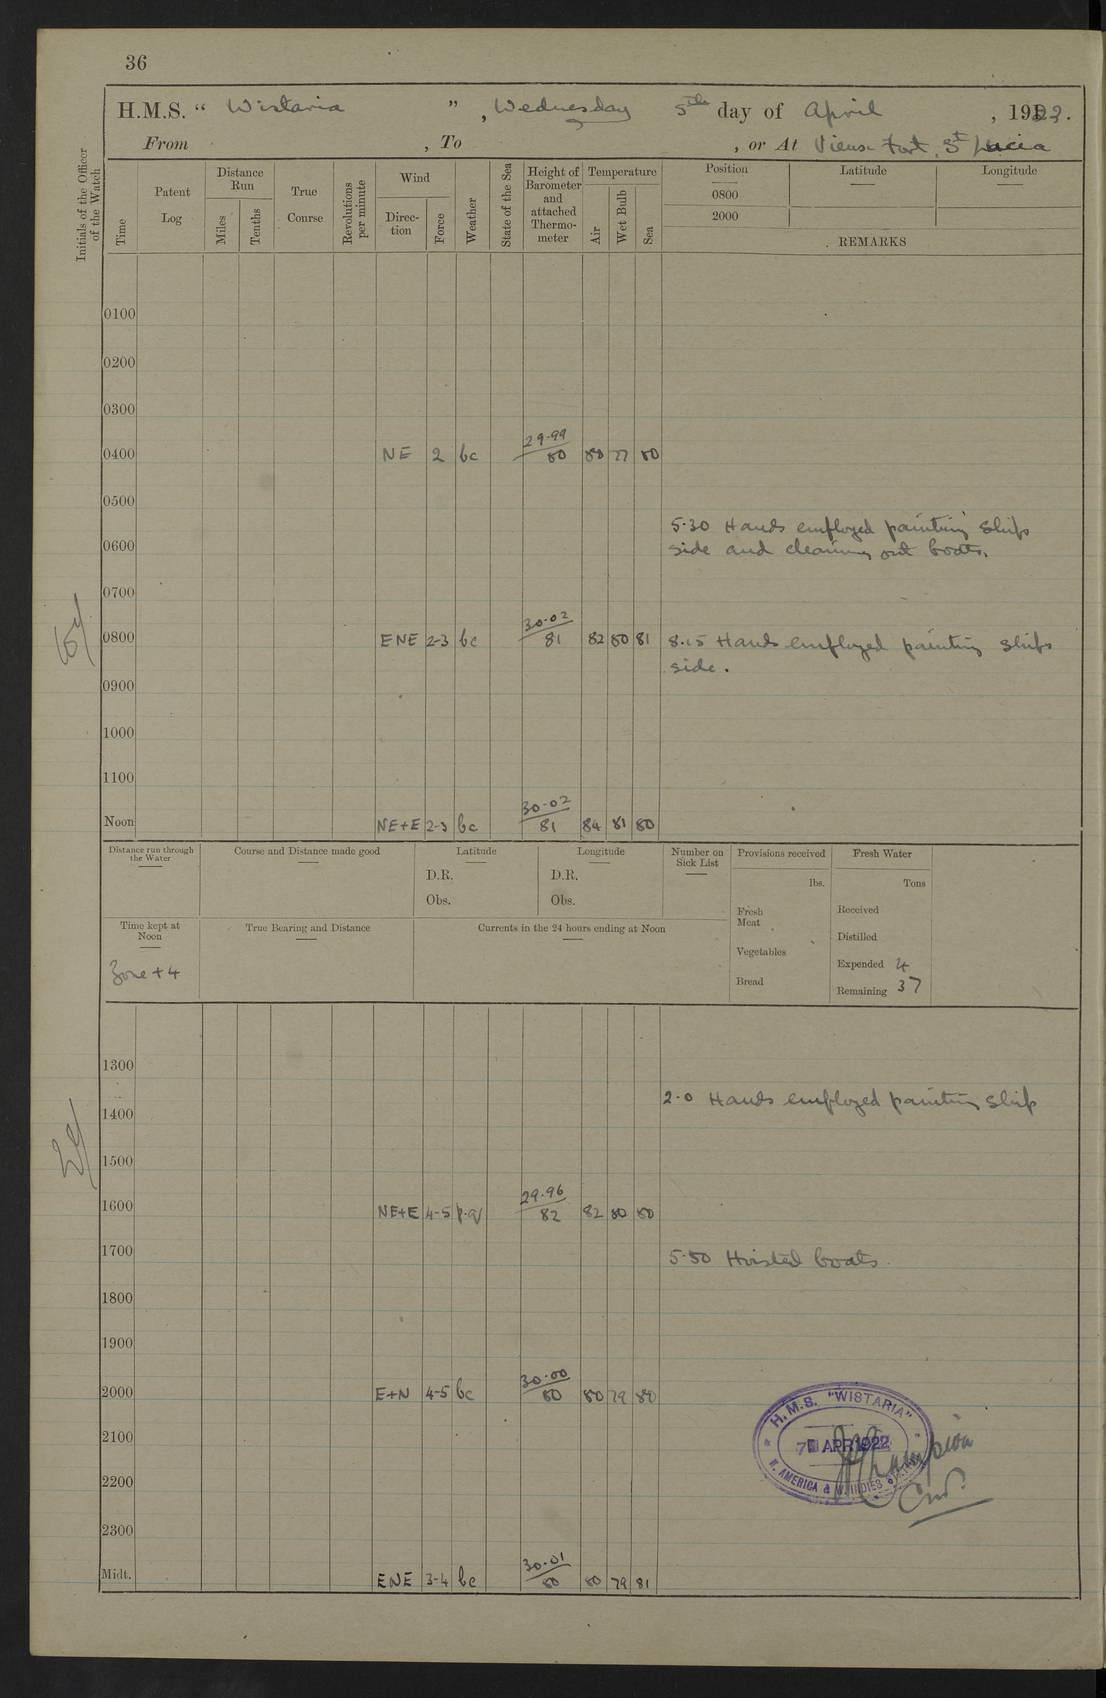 36
H.M.S. “ Wistaria ” , Wednesday 5th day of April , 1922.
From , To , or At Vieux Fort, St Lucia
Initials of the Officer of the Watch
Time
Patent Log
Distance Run
Miles
Tenths
True Course
Revolutions per minute
Wind
Direction
Force
Weather
State of the Sea
Height of Barometer and attached Thermo-meter
Temperature
Air
Wet Bulb
Sea
Position
0800
2000
Latitude
Longitude
REMARKS
0100
0200
0300
0400 NE 2 bc 29.99 80 80 77 80
0500
5.30 Hands employed painting ships
0600 side and cleaning out boats.
0700
0800 ENE 2-3 bc 30.02 81 82 80 81 8.15 Hands employed painting ships
side.
0900
1000
1100
Noon NE+E 2-3 bc 30.02 81 84 81 80
Distance run through the Water
Course and Distance made good
Latitude
D.R.
Obs.
Longitude
D.R.
Obs.
Number on Sick List
Provisions received
lbs.
Fresh Meat
Vegetables
Bread
Fresh Water
Tons
Received
Distilled
Expended 4
Remaining 37
Time kept at Noon
Zone +4
True Bearing and Distance
Currents in the 24 hours ending at Noon
1300
2.0 Hands employed painting ship
1400
1500
1600 NE+E 4-5 p.q 29.96 82 82 80 80
1700 5.50 Hoisted boats
1800
1900
2000 E+N 4-5 bc 30.00 80 80 79 80
2100
2200
2300
Midt. ENE 3-4 bc 30.01 80 80 79 81
H.M.S. "WISTARIA"
7 APR 1922
N. AMERICA & W. INDIES
Champion